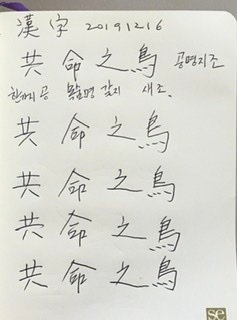 漢字 20191216
共命之鳥 공명지조
함께공 목숨명 갈지 새조.
共命之鳥
共命之鳥
共命之鳥
共命之鳥
se